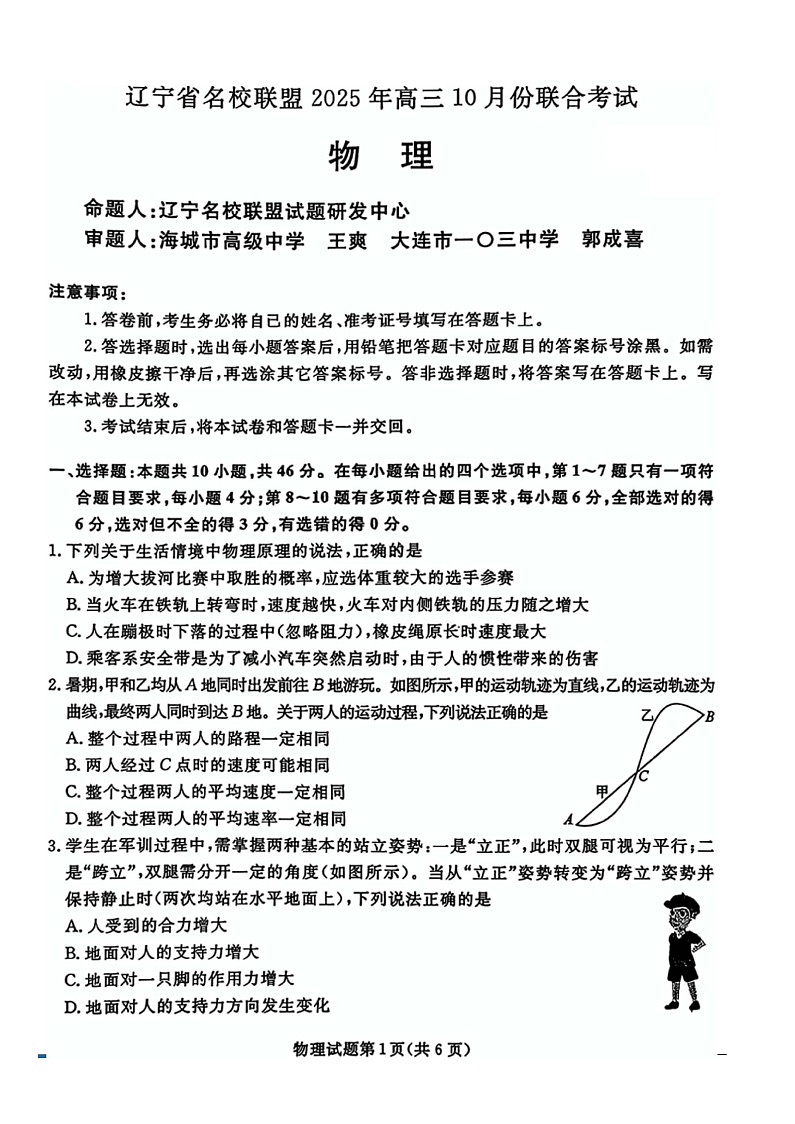 辽宁省名校联盟2025年高三10月份联合考试
物 理
命题人:辽宁名校联盟试题研发中心
审题人:海城市高级中学 王爽 大连市一〇三中学 郭成喜
注意事项:
1.答卷前,考生务必将自己的姓名、准考证号填写在答题卡上。
2.答选择题时,选出每小题答案后,用铅笔把答题卡对应题目的答案标号涂黑。如需
改动,用橡皮擦干净后,再选涂其它答案标号。答非选择题时,将答案写在答题卡上。写
在本试卷上无效。
3.考试结束后,将本试卷和答题卡一并交回。
一、选择题:本题共10小题,共46分。在每小题给出的四个选项中,第1~7题只有一项符
合题目要求,每小题4分;第8~10题有多项符合题目要求,每小题6分,全部选对的得
6分,选对但不全的得3分,有选错的得0分。
1.下列关于生活情境中物理原理的说法,正确的是
A.为增大拔河比赛中取胜的概率,应选体重较大的选手参赛
B.当火车在铁轨上转弯时,速度越快,火车对内侧铁轨的压力随之增大
C.人在蹦极时下落的过程中(忽略阻力),橡皮绳原长时速度最大
D.乘客系安全带是为了减小汽车突然启动时,由于人的惯性带来的伤害
2.暑期,甲和乙均从A地同时出发前往B地游玩。如图所示,甲的运动轨迹为直线,乙的运动轨迹为
曲线,最终两人同时到达B地。关于两人的运动过程,下列说法正确的是
A.整个过程中两人的路程一定相同
B.两人经过C点时的速度可能相同
C.整个过程两人的平均速度一定相同
D.整个过程两人的平均速率一定相同
乙
B
C
甲
A
3.学生在军训过程中,需掌握两种基本的站立姿势:一是“立正”,此时双腿可视为平行;二
是“跨立”,双腿需分开一定的角度(如图所示)。当从“立正”姿势转变为“跨立”姿势并
保持静止时(两次均站在水平地面上),下列说法正确的是
A.人受到的合力增大
B.地面对人的支持力增大
C.地面对一只脚的作用力增大
D.地面对人的支持力方向发生变化
物理试题第1页(共6页)